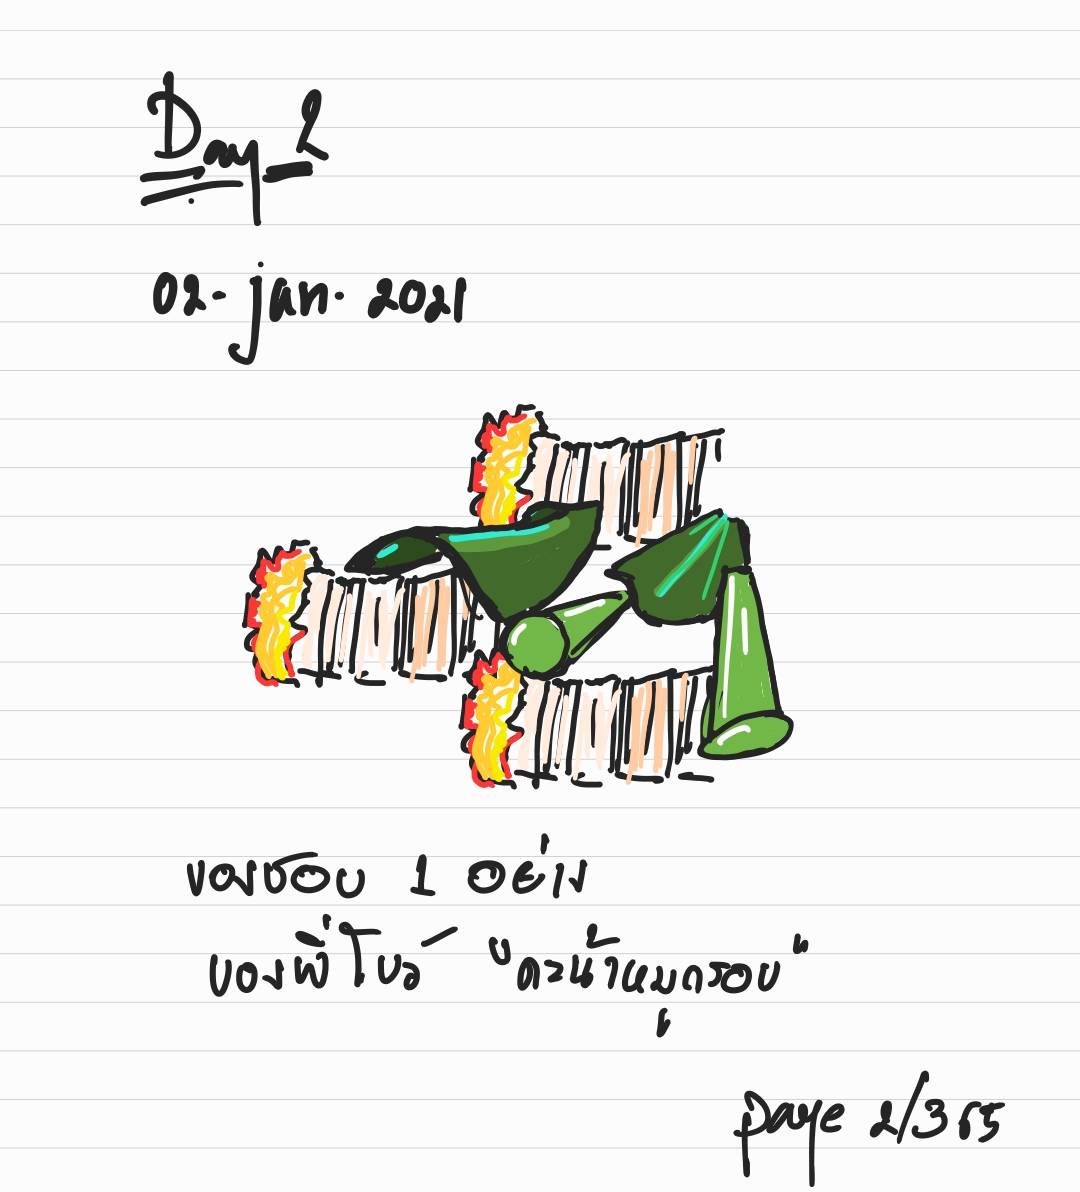 Day 2
02. jan. 2021
ของชอบ 1 อย่าง
ของพี่โบว์ "คะน้าหมูกรอบ"
page 2/365